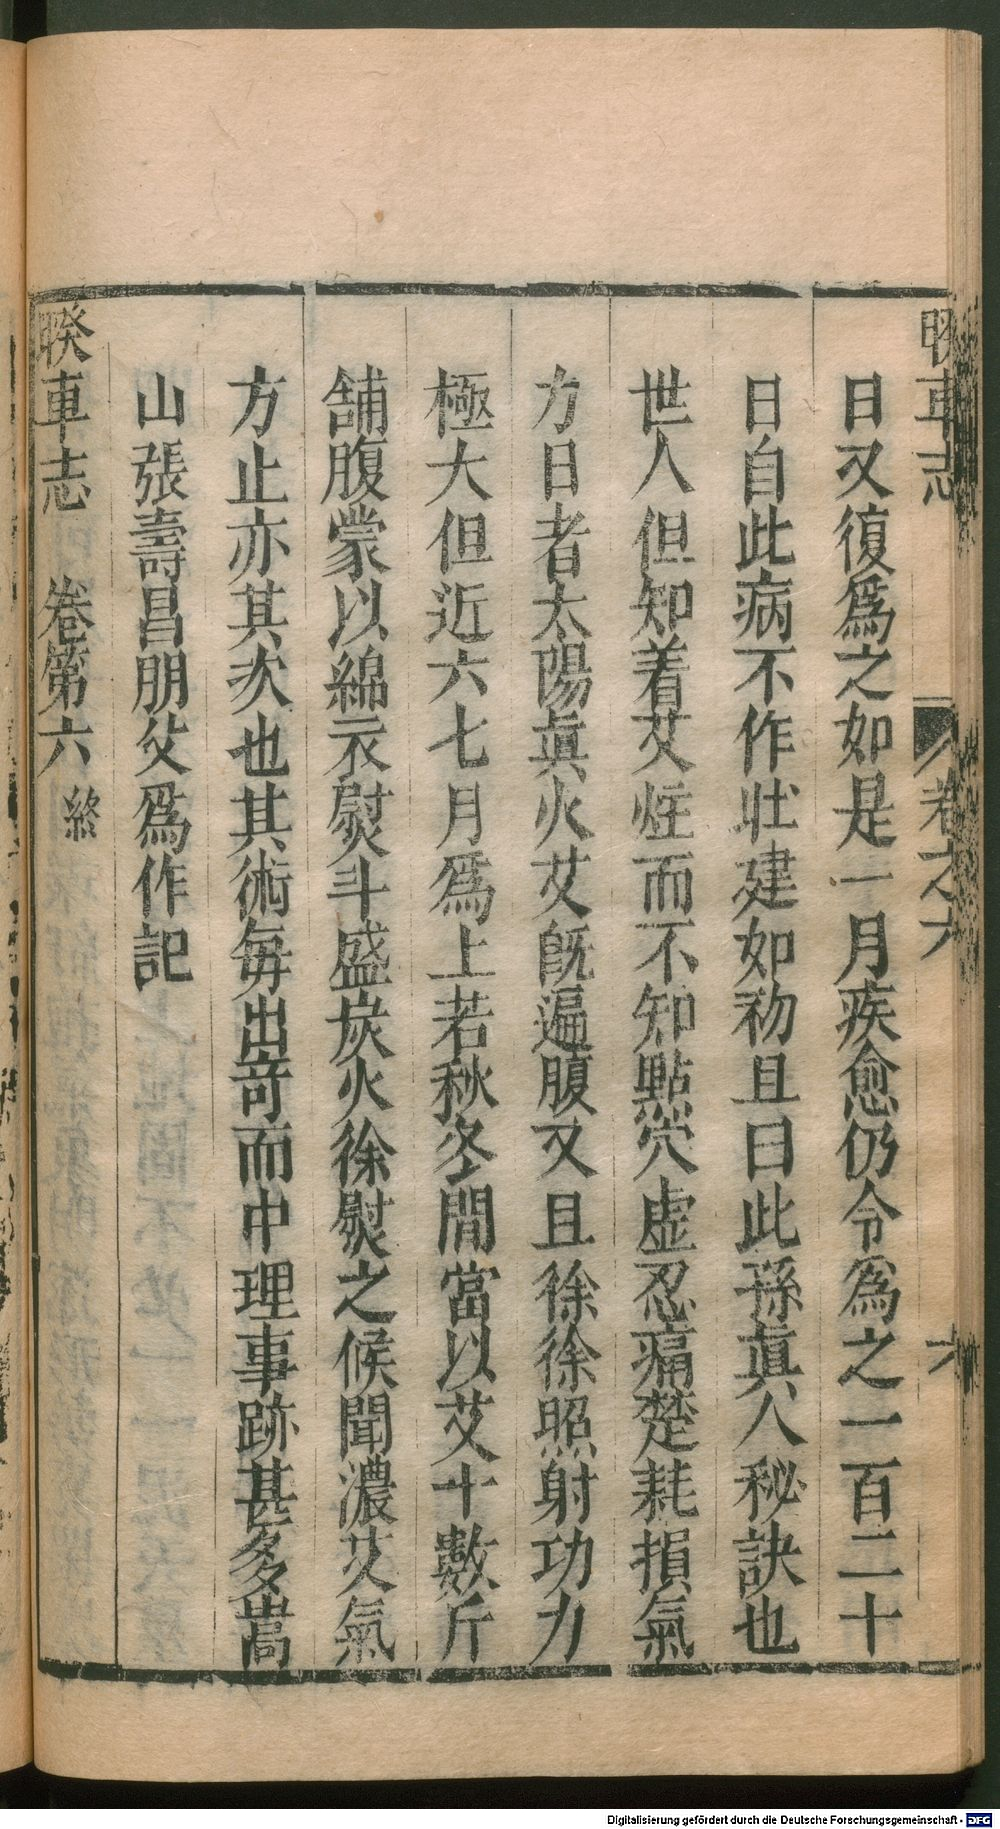 睽車志 卷之六 六
日又復爲之如是一月疾愈仍令爲之一百二十
日自此病不作壯建如初且曰此孫眞人秘訣也
世人但知着艾炷而不知點穴虛忍痛楚耗損氣
力日者太陽眞火艾旣遍腹又且徐徐照射功力
極大但近六七月爲上若秋冬間當以艾十數斤
舖腹蒙以綿衣熨斗盛炭火徐熨之候聞濃艾氣
方止亦其次也其術每出竒而中理事跡甚多嵩
山張壽昌朋父爲作記
睽車志 卷第六 終
Digitalisierung gefördert durch die Deutsche Forschungsgemeinschaft - DFG